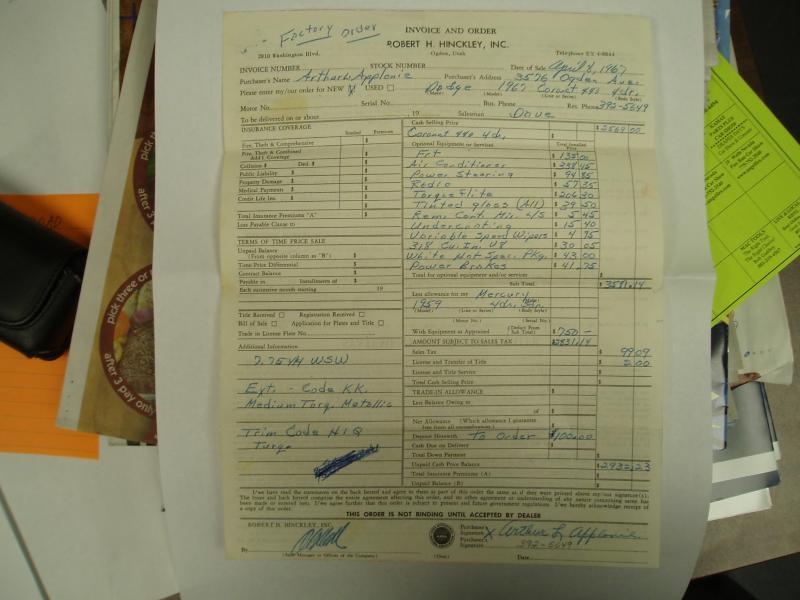 Factory Order
INVOICE AND ORDER
ROBERT H. HINCKLEY, INC.
2810 Washington Blvd.
Ogden, Utah
Telephone EX 4-6644
INVOICE NUMBER STOCK NUMBER Date of Sale April 8, 1967
Purchaser's Name Arthur L. Applonie Purchaser's Address 3576 Ogden Ave.
Please enter my/our order for NEW USED Dodge 1967 Coronet 440 4dr.
(Model) (Line or Series) (Body Style)
Motor No. Serial No. Bus. Phone Res. Phone 392-5649
To be delivered on or about 19 Salesman Dave
INSURANCE COVERAGE
Premium
Fire, Theft & Comprehensive
Fire, Theft & Combined
Add'l Coverage
Collision $ Ded $
Public Liability $
Property Damage $
Medical Payments $
Credit Life Ins. $
Total Insurance Premiums "A" $
Loss Payable Clause to
TERMS OF TIME PRICE SALE
Unpaid Balance
(From opposite column as "B") $
Time Price Differential $
Contract Balance $
Payable in Installments of $
Each successive month starting 19
Title Received Registration Received
Bill of Sale Application for Plates and Title
Trade in License Plate No.
Additional Information
7.75x14 WSW
Ext. - Code KK
Medium Turq. Metallic
Trim Code H1Q
Turqe
Cash Selling Price
Coronet 440 4dr. $2569.00
Optional Equipment or Services Total Installed Price
Frt
Air Conditioner
Power Steering 94 85
Radio 57 35
Torque Flite 206 30
Tinted glass (All) 39 50
Rem. Cont. Mir. L/S 5 45
Undercoating 15 40
Variable Speed Wipers
318 Cu. In. V8 30 05
White Hat Spec. Pkg. 43.00
Power Brakes 41.75
Total for optional equipment and/or services $
Sub Total $3581.14
Less allowance for my Mercury
1959 4dr. Sdn.
(Model) (Line or Series) (Body Style)
(Motor No.) (Serial No.)
With Equipment as Appraised (Deduct From Sub Total) $750 -
AMOUNT SUBJECT TO SALES TAX $2831.14
Sales Tax $ 99.09
License and Transfer of Title $ 2.00
License and Title Service $
Total Cash Selling Price $
TRADE-IN ALLOWANCE $
Less Balance Owing to
of $
Net Allowance (Which allowance I guarantee
free from all encumbrances.) $
Deposit Herewith To Order $100.00
Cash Due on Delivery $
Total Down Payment $
Unpaid Cash Price Balance $2932.23
Total Insurance Premiums (A) $
Unpaid Balance (B) $
I/we have read the statements on the back hereof and agree to them as part of this order the same as if they were printed above my/our signature(s).
The front and back hereof comprise the entire agreement affecting this order, and no other agreement or understanding of any nature concerning same has
been made or entered into. I/we agree further that this order is subject to present and future government regulations. I/we hereby acknowledge receipt of
a copy of this order.
THIS ORDER IS NOT BINDING UNTIL ACCEPTED BY DEALER
ROBERT H. HINCKLEY, INC.
By
(Sales Manager or Officer of the Company)
(Seal)
Purchaser's
Signature X Arthur L Applonie
Purchaser's
Signature 392-5649
Date
pick three or
after 3 pay only